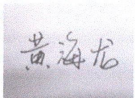 黄海龙